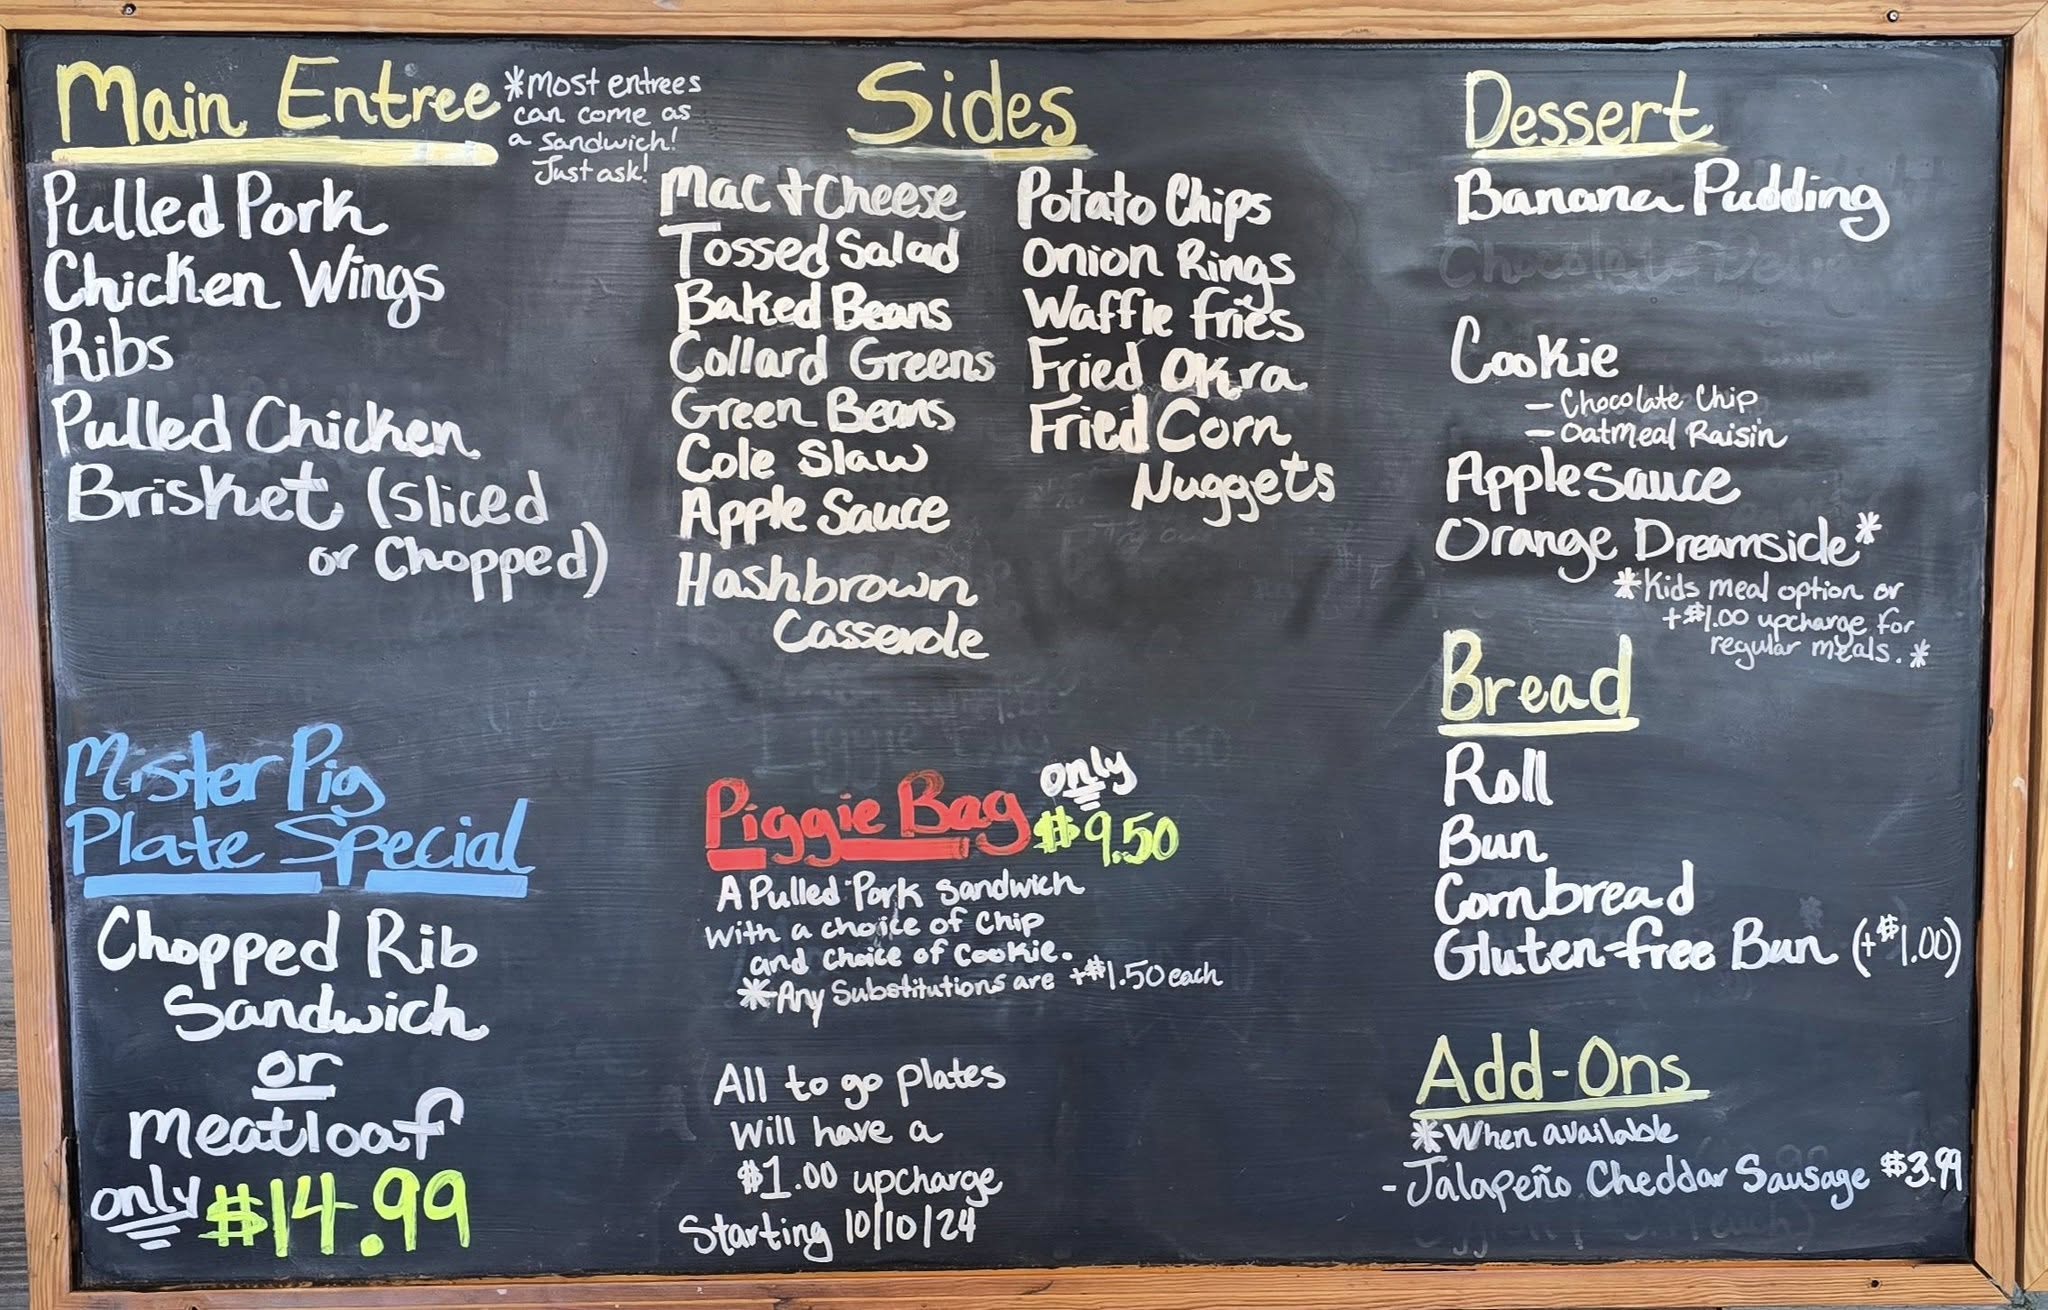 Main Entree
*Most entrees
can come as
a sandwich!
Just ask!
Pulled Pork
Chicken Wings
Ribs
Pulled Chicken
Brisket (Sliced
or Chopped)
Mister Pig
Plate Special
Chopped Rib
Sandwich
or
Meatloaf
only $14.99
Sides
Mac & Cheese
Tossed Salad
Baked Beans
Collard Greens
Green Beans
Cole Slaw
Apple Sauce
Hashbrown
Casserole
Potato Chips
Onion Rings
Waffle Fries
Fried Okra
Fried Corn
Nuggets
Piggie Bag only
$9.50
A Pulled Pork Sandwich
with a choice of Chip
and choice of Cookie.
*Any Substitutions are +$1.50 each
All to go plates
will have a
$1.00 upcharge
Starting 10/10/24
Dessert
Banana Pudding
Cookie
- Chocolate Chip
- Oatmeal Raisin
Applesauce
Orange Dreamsicle*
*Kids meal option or
+$1.00 upcharge for
regular meals.*
Bread
Roll
Bun
Cornbread
Gluten-free Bun (+$1.00)
Add-Ons
*When available
- Jalapeño Cheddar Sausage $3.99